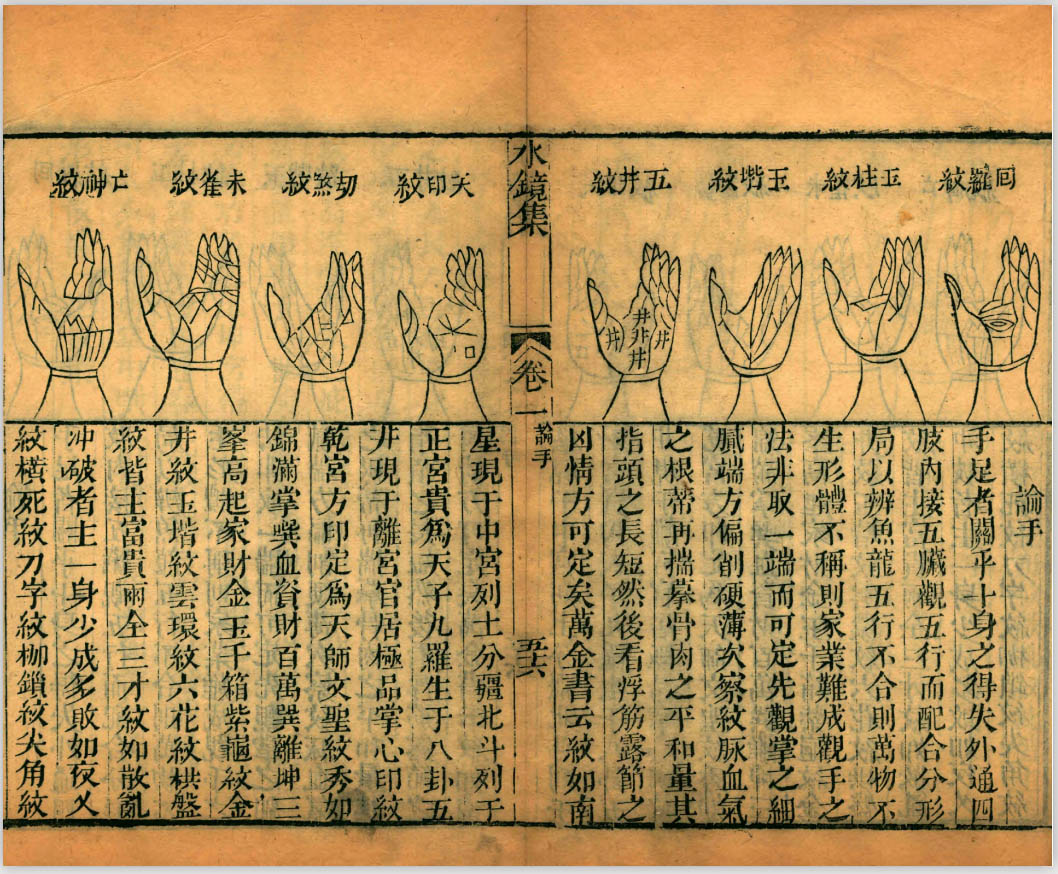 回羅紋
玉柱紋
玉堦紋
五井紋
論手
手足者關乎一身之得失外通四
肢內接五臟觀五行而配合分形
局以辨魚龍五行不合則萬物不
生形體不稱則家業難成觀手之
法非取一端而可定先觀掌之細
膩端方偏削硬薄次察紋脉血氣
之根蒂再揣摹骨肉之平和量其
指頭之長短然後看浮筋露節之
凶情方可定矣萬金書云紋如南
水鏡集
卷一
論手
五六
天印紋
刧煞紋
朱雀紋
亡神紋
星現于中宮列土分疆北斗列于
正宮貴爲天子九羅生于八卦五
井現于離宮官居極品掌心印紋
乾宮方印定爲天師文聖紋秀如
錦滿掌巽血資財百萬巽離坤三
峯高起家財金玉千箱紫龜紋金
井紋玉堦紋雲環紋六花紋栱盤
紋皆主富貴兩全三才紋如散亂
冲破者主一身少成多敗如夜乂
紋橫死紋刀字紋枷鎖紋尖角紋